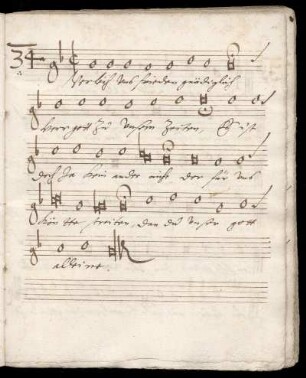 34
Verleih Uns frieden gnädiglich
herr gott Zů Unsern Zeiten, Es ist
doch Ja kein ander nicht der für Uns
kön̄te streiten, dan du Unser gott
alleine.